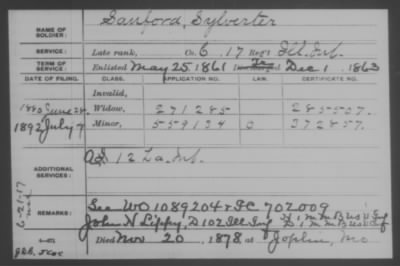 NAME OF SOLDIER: Sanford, Sylvester
SERVICE: Late rank, Co. G, 17 Reg't Ill. Inf.
TERM OF SERVICE: Enlisted May 25, 1861 Dec 1, 1863
DATE OF FILING. CLASS. APPLICATION NO. LAW. CERTIFICATE NO.
Invalid,
1880 June 28. Widow, 271285 285557.
1892 July 7 Minor, 559134 372857.
ADDITIONAL SERVICES: 12 La. Inf.
REMARKS: See WO 1089204 & FC 702009
John N Lippy, D 102 Ill Inf
Died Nov 20, 1878, at Joplin, Mo
6-21-17